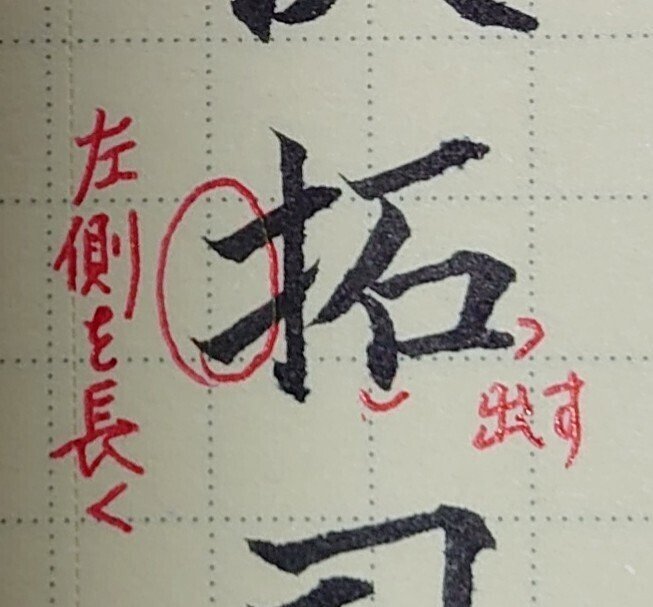 左側を長く
拓
出す